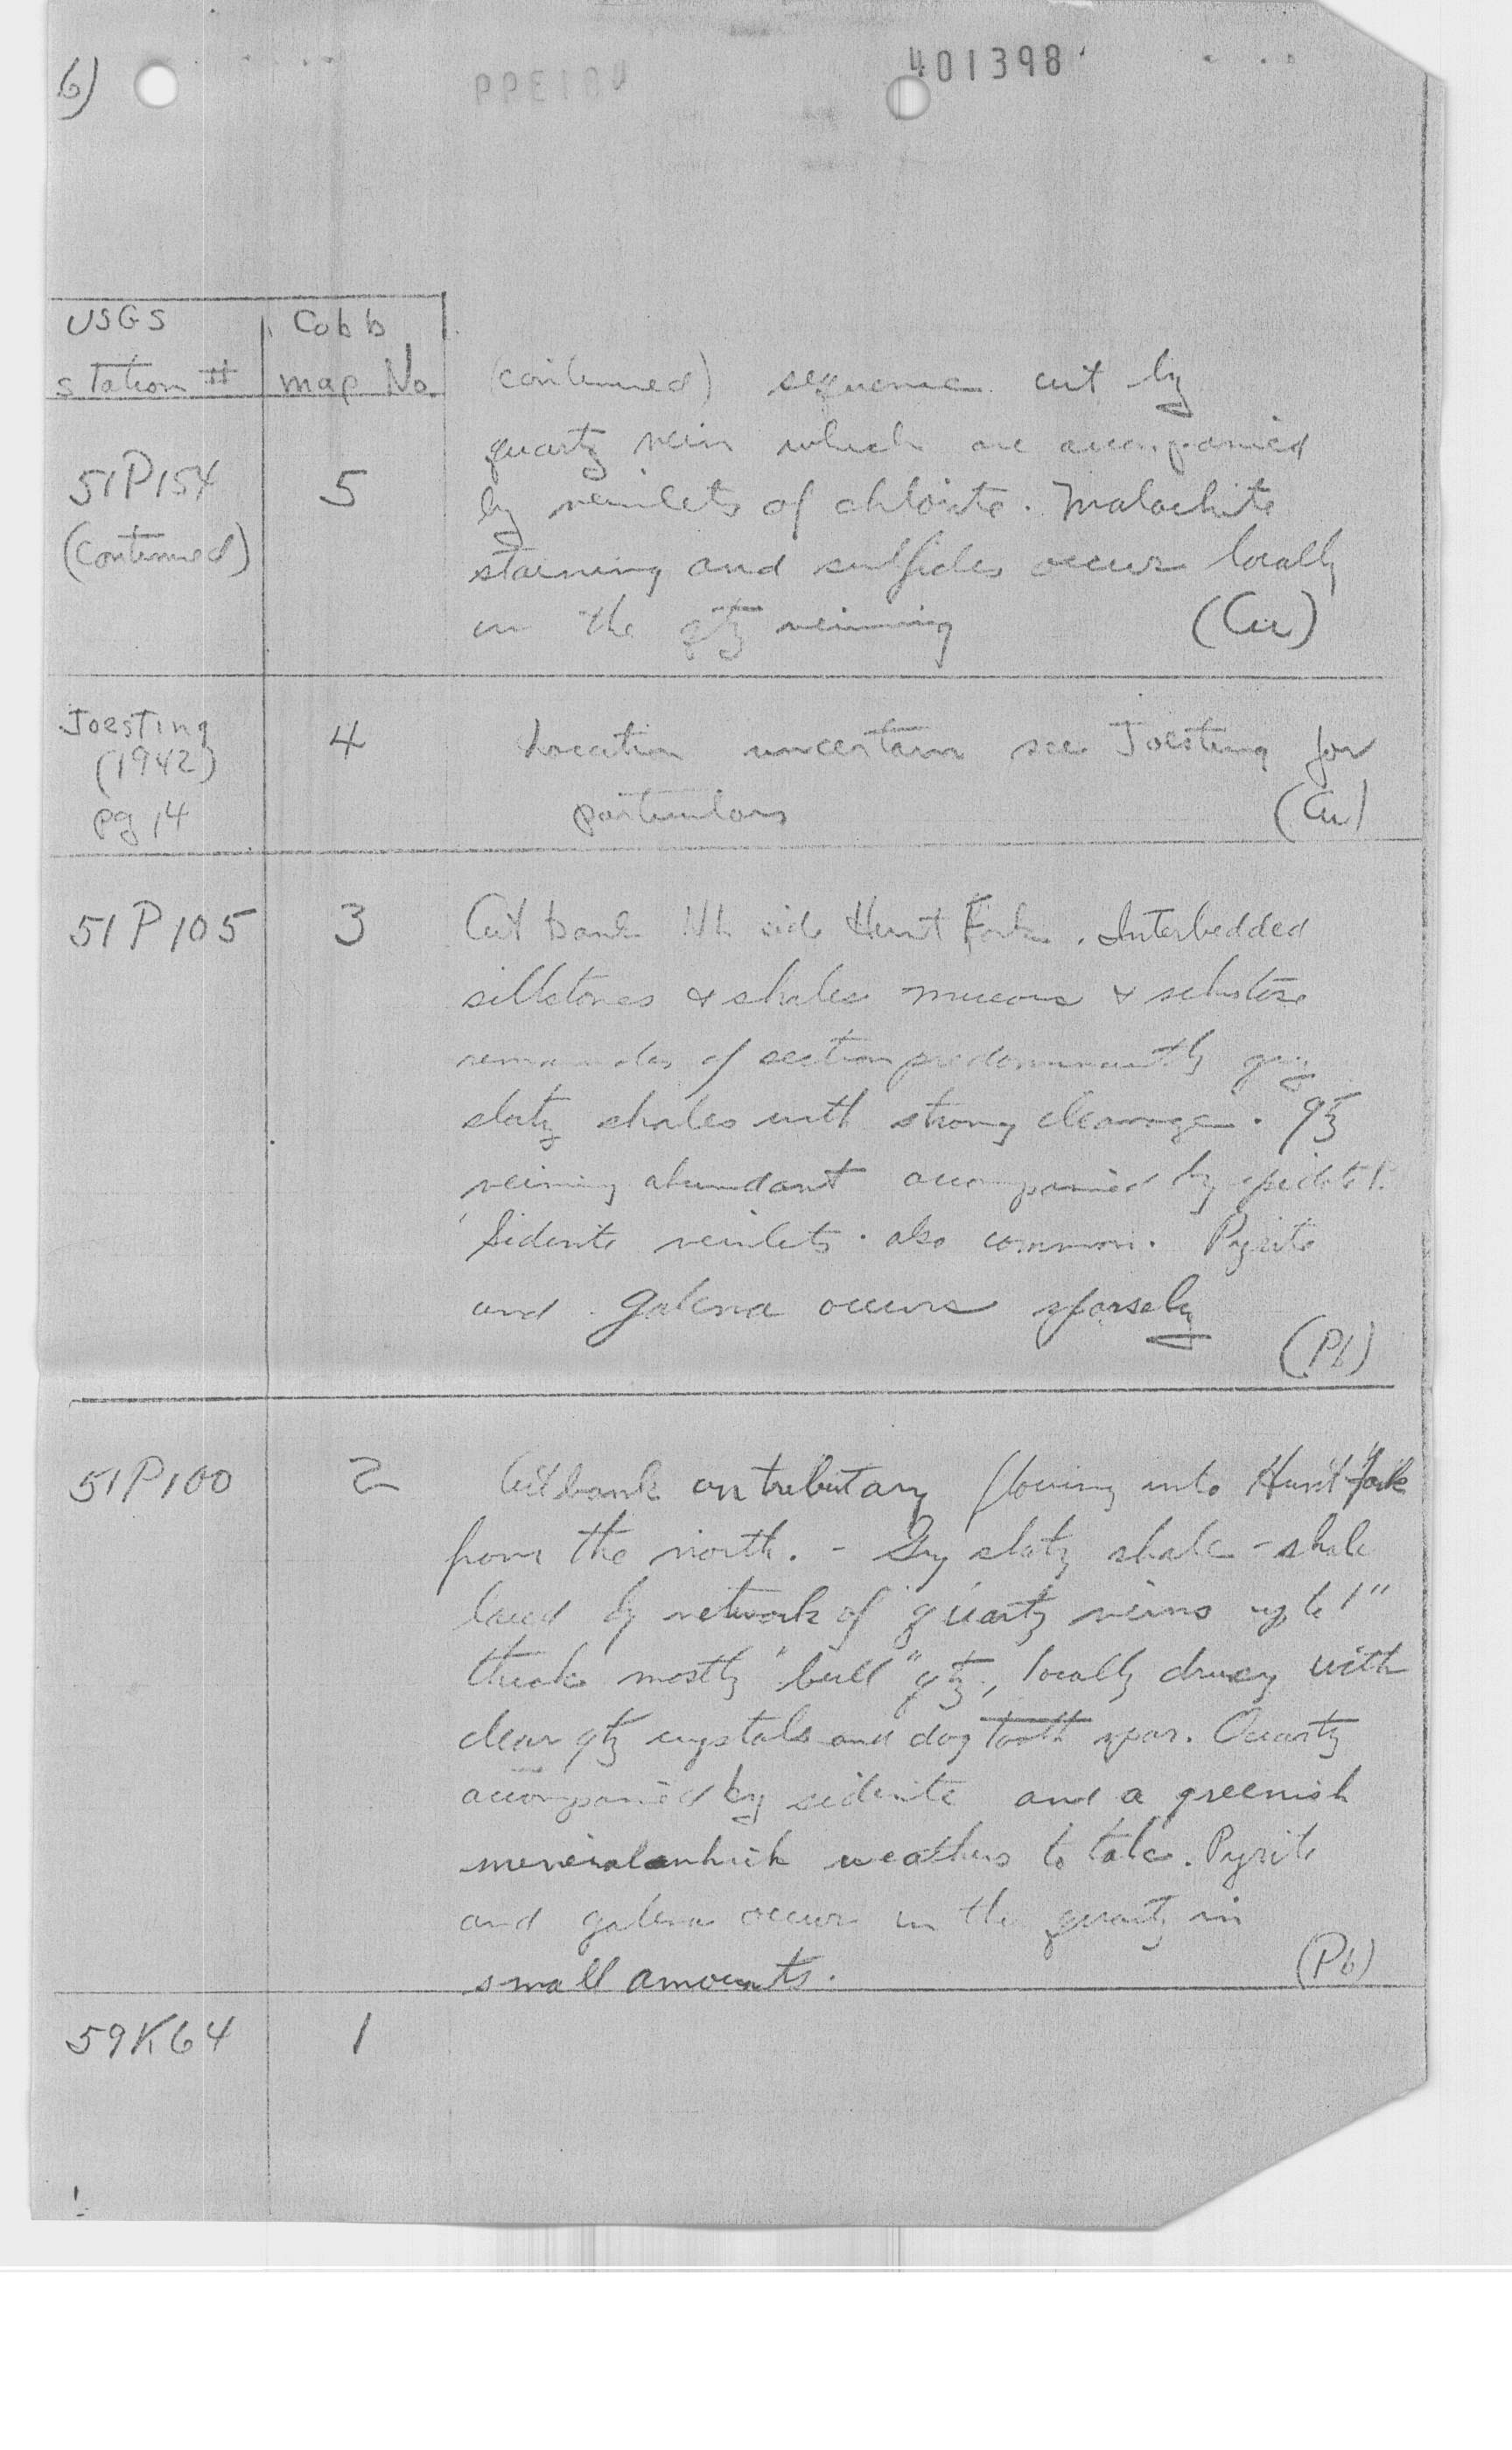 6)
401398
USGS
station #
Cobb
map No.
51P154
(continued)
5
(continued) sequence cut by
quartz vein which are accompanied
by veinlets of chlorite. Malachite
staining and sulfides occur locally
in the qtz veining (Cu)
Joesting
(1942)
pg 14
4
Location uncertain see Joesting for
particulars (Cu)
51P105
3
Cut bank side Hunt Fork. Interbedded
siltstones & shales & schistose
remainder of section predominantly gray
slaty shales with strong cleavage. qtz
veining abundant accompanied by
Siderite veinlets also common. Pyrite
and galena occurs sparsely
(Pb)
51P100
2
Cutbank on tributary flowing into Hunt fork
from the north. - Gry slaty shale - shale
laced by network of quartz veins up to 1"
thick mostly "bull" qtz, locally drusy with
clear qtz crystals and dog tooth spar. Quartz
accompanied by siderite and a greenish
mineral which weathers to talc. Pyrite
and galena occur in the quartz in
small amounts. (Pb)
59K64
1